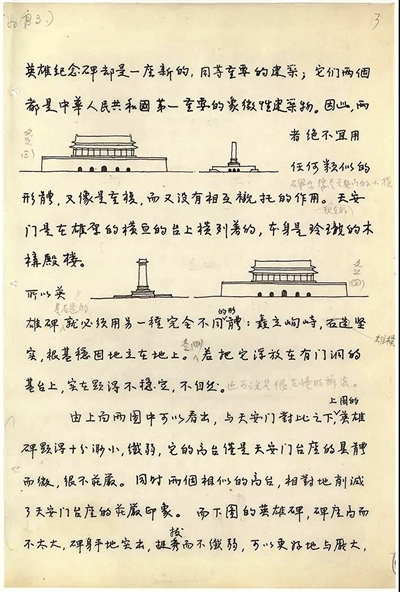 3
英雄纪念碑却是一座新的,同等重要的建築;它们两個
都是中華人民共和國第一重要的象徵性建築物。因此,两
者绝不宜用
任何類似的
形體,又像是重複,而又没有相互襯托的作用。天安
门是在雄厚的横亘的台上横列着的,本身是玲瓏的木
構殿楼。
所以英
雄碑就必须用另一種完全不同的形體:矗立峋峙,
實,根基稳固地立在地上。若把它浮放在有门洞的
基台上,实在显得不稳定,不自然。
由上面两图中可以看出,与天安门對比之下,上图的英雄
碑顕得十分渺小,纖弱,它的高台僅是天安门台座的具體
而微,很不莊嚴。同时两個相似的高台,相對地削減
了天安门台座的莊嚴印象。而下图的英雄碑,碑座高而
不太大,碑身平地突出,挺拔而不纖弱,可以更好地与龐大,